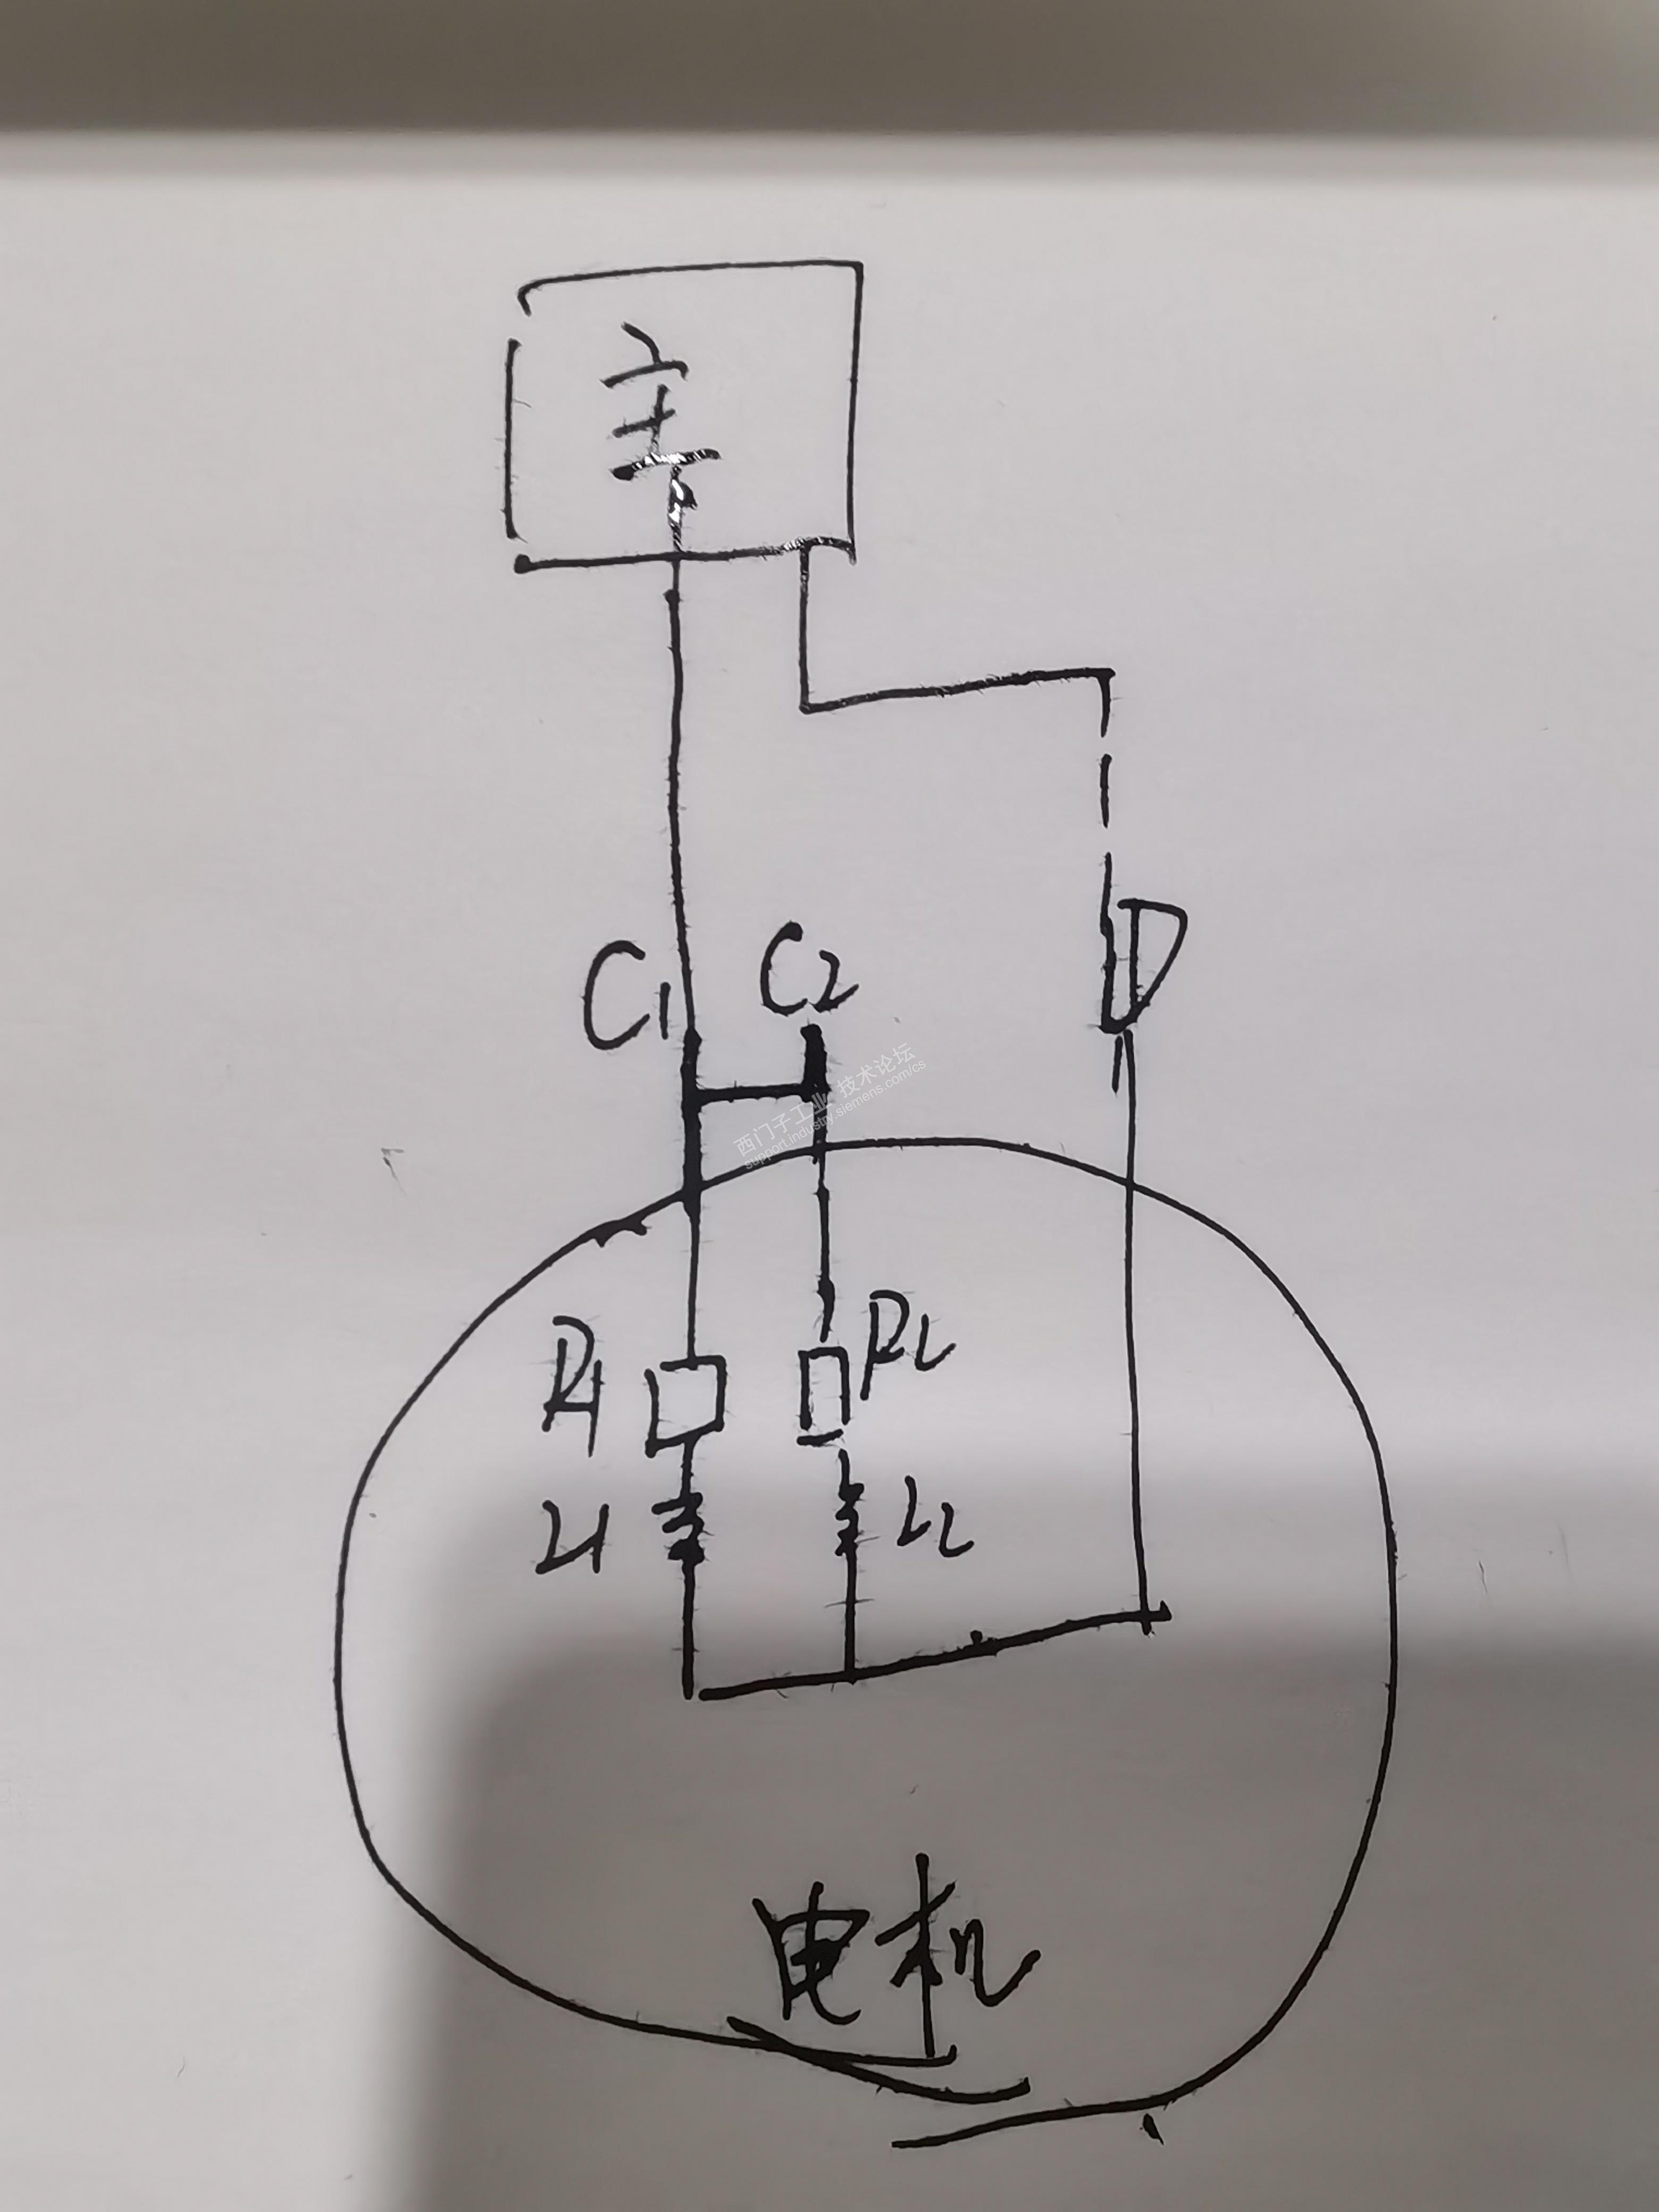 主
C1 C2 D
西门子工业 技术论坛
support.industry.siemens.com/cs
R1 R2
L1 L2
电机